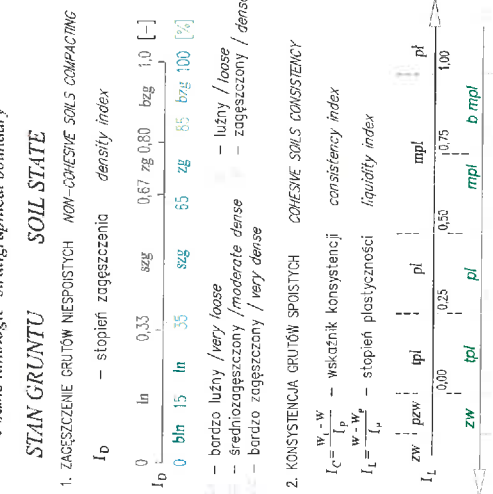 STAN GRUNTU SOIL STATE
1. ZAGĘSZCZENIE GRUTÓW NIESPOISTYCH NON-COHESIVE SOILS COMPACTING
I_D – stopień zagęszczenia density index
0 ln 0,33 szg 0,67 zg 0,80 bzg 1,0 [–]
I_D
0 bln 15 ln 35 szg 65 zg 85 bzg 100 [%]
– bardzo luźny /very loose – luźny /loose
– średniozagęszczony /moderate dense – zagęszczony / dense
– bardzo zagęszczony / very dense
2. KONSYSTENCJA GRUTÓW SPOISTYCH COHESIVE SOILS CONSISTENCY
I_C = – wskaźnik konsystencji consistency index
I_L = – stopień plastyczności liquidity index
zw pzw tpl pl mpl pł
I_L 0,00 0,25 0,50 0,75 1,00
zw tpl pl mpl b mpl